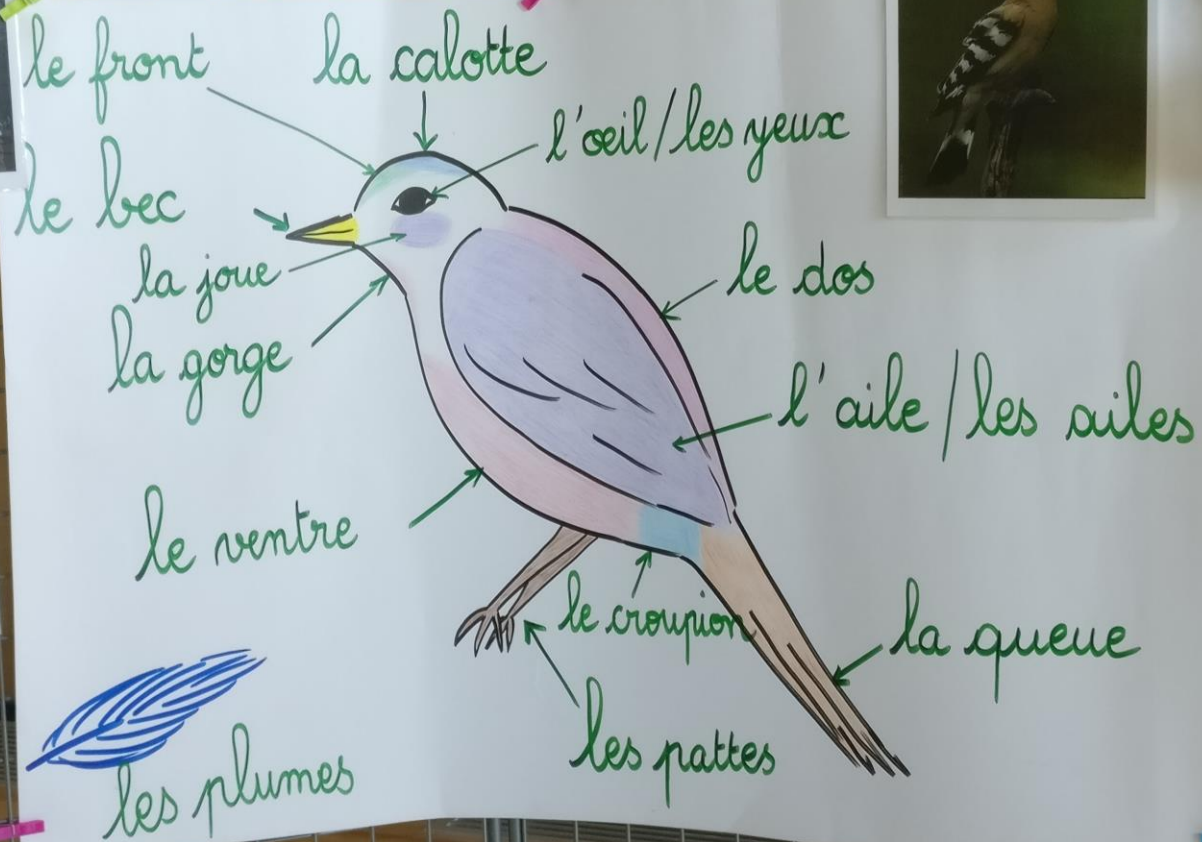 le front
la calotte
l'oeil/les yeux
le bec
la joue
le dos
la gorge
l'aile/les ailes
le ventre
le croupion
la queue
les pattes
les plumes